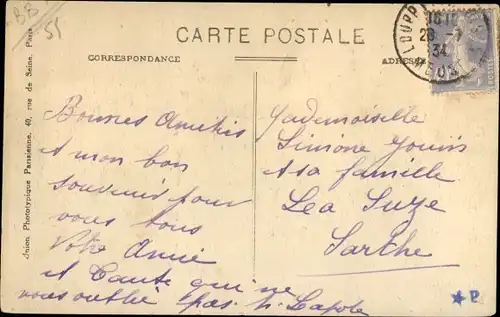 BB
51
CARTE POSTALE
CORRESPONDANCE
ADRESSE
Union Phototypique Parisienne, 49, rue de Seine, Paris
LOUPP
MEUSE
28 -7
34
Bonnes Amitiés
et mon bon
souvenir pour
vous tous
Votre Amie
et Tante qui ne
vous oublie pas. h. Lapole
Mademoiselle
Simone
et sa famille
Lea Suze
Sarthe
★P